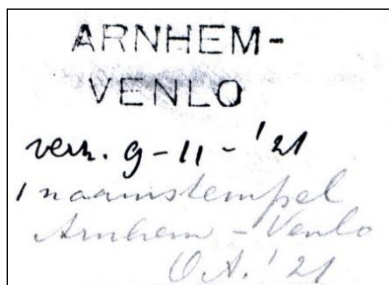 ARNHEM-
VENLO
verz. 9-11-'21
1 naamstempel
Arnhem - Venlo
O.A.'21